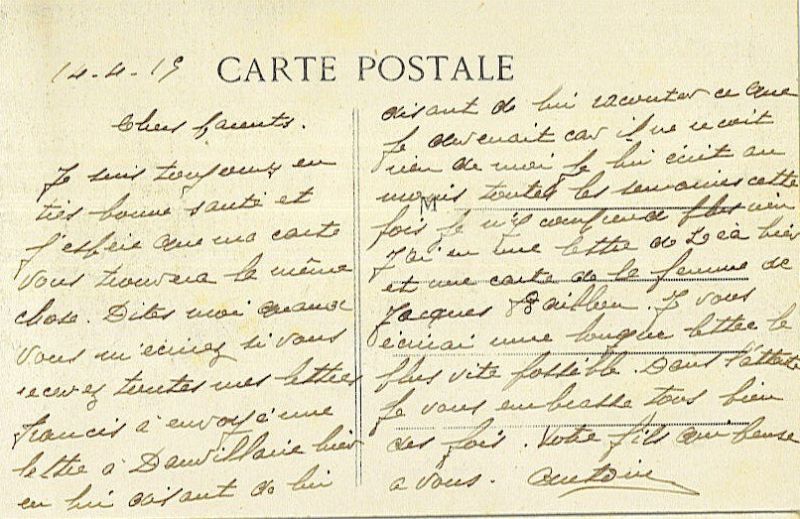 14-4-19 CARTE POSTALE
Chers parents.
Je suis toujours en
très bonne santé et
j'espère que ma carte
vous trouvera le même
chose. Dites moi quand
vous m'écrirez si vous
recevez toutes mes lettres
francis à envoyé une
lettre à Dauvillaire hier
en lui disant de lui
disant de lui raconter ce que
je devenait car il ne recoit
rien de moi je lui écrit au
M
moins toutes les semaines cette
fois je n'y comprend plus rien
J'ai eu une lettre de Léa hier
et une carte de la femme de
Jacques Baillien. Je vous
écrirai une longue lettre le
plus vite possible. Dans l'attente
Je vous embrasse tous bien
des fois. Votre fils qui pense
a vous. Antoine